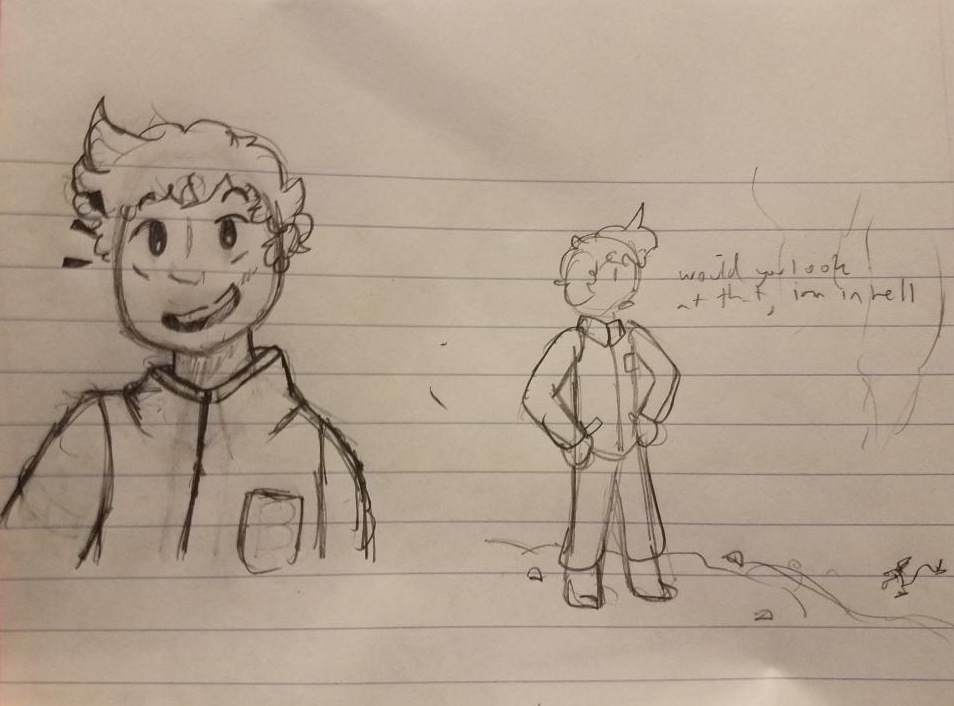 would you look
at that, im in hell